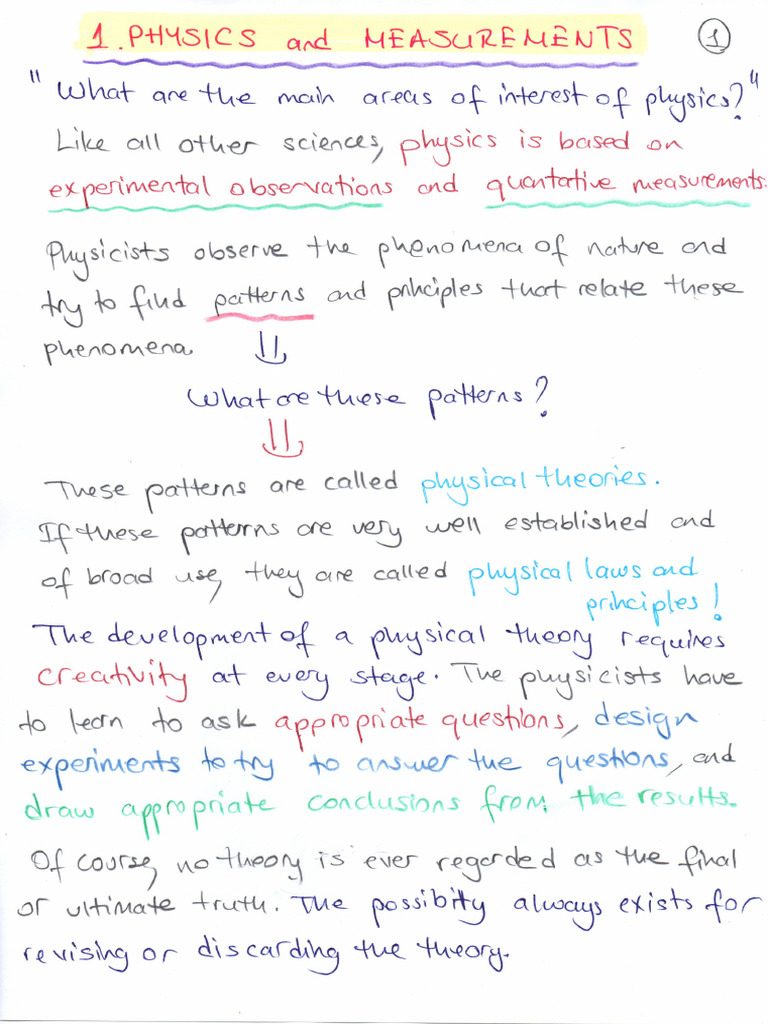 1. PHYSICS and MEASUREMENTS
1
"What are the main areas of interest of physics?"
Like all other sciences, physics is based on
experimental observations and quantative measurements.
Physicists observe the phenomena of nature and
try to find patterns and principles that relate these
phenomena.
What are these patterns?
These patterns are called physical theories.
If these patterns are very well established and
of broad use, they are called physical laws and
principles!
The development of a physical theory requires
creativity at every stage. The physicists have
to learn to ask appropriate questions, design
experiments to try to answer the questions, and
draw appropriate conclusions from the results.
Of course, no theory is ever regarded as the final
or ultimate truth. The possibity always exists for
revising or discarding the theory.